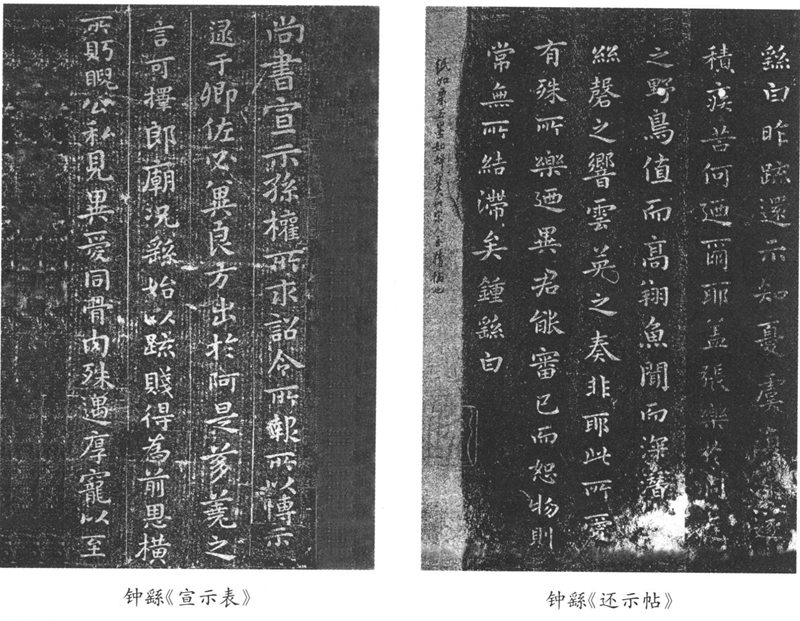 尚書宣示孫權所求詔令所報所以博示
逮于卿佐必異良方出於阿是芻蕘之
言可擇郎廟況繇始以疏賤得為前恩橫
所眄睨公私見異愛同骨肉殊遇厚寵以至
钟繇《宣示表》
繇白昨疏還示知憂虞
積疾苦何迺爾耶蓋張樂於洞庭
之野鳥值而高翔魚聞而深潛
絲磬之響雲英之奏非耶此所愛
有殊所樂迺異君能審己而恕物則
常無所結滯矣鍾繇白
钟繇《还示帖》